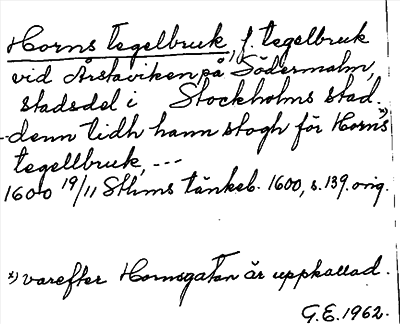 Horns tegelbruk, f. tegelbruk
vid Årstaviken på Södermalm,
stadsdel i Stockholms stad.
-denn tidh hann stogh för Horns x)
tegellbruk, ---
1600 19/11 Sthms tänkeb. 1600, s. 139. orig.
x) varefter Hornsgatan är uppkallad.
G.E. 1962.